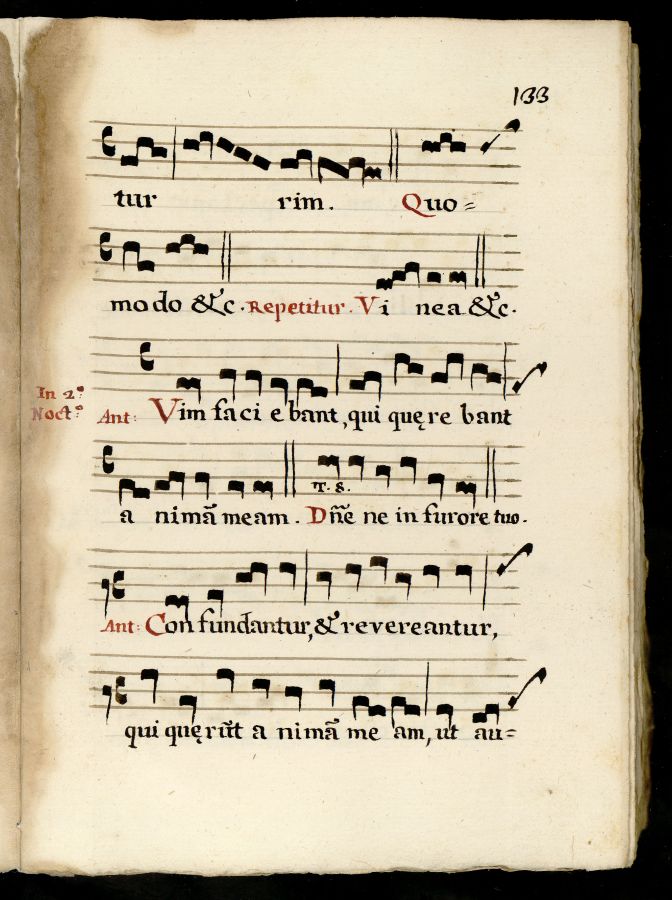 133
tur rim. Quo=
modo &c. Repetitur. Vi nea &c.
In 2º. Noctº
Ant: Vim faciebant, qui quęrebant
T. 8.
a nimã meam. Dñe ne in furore tuo.
Ant: Confundantur, & revereantur,
qui quęrũt a nimã me am, ut au=